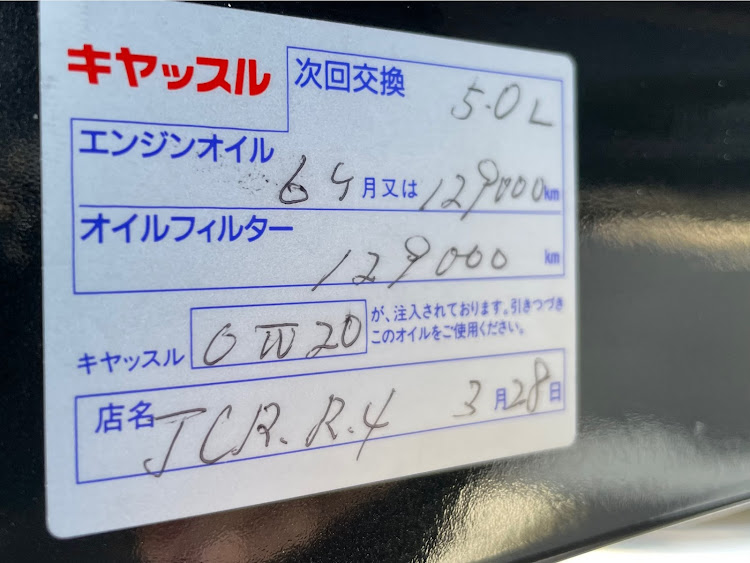 キヤッスル
次回交換 5.0L
エンジンオイル
6ケ月又は129000km
オイルフィルター
129000km
キヤッスル 0W20 が、注入されております。引きつづき
このオイルをご使用ください。
店名 JCR.R.4 3月28日